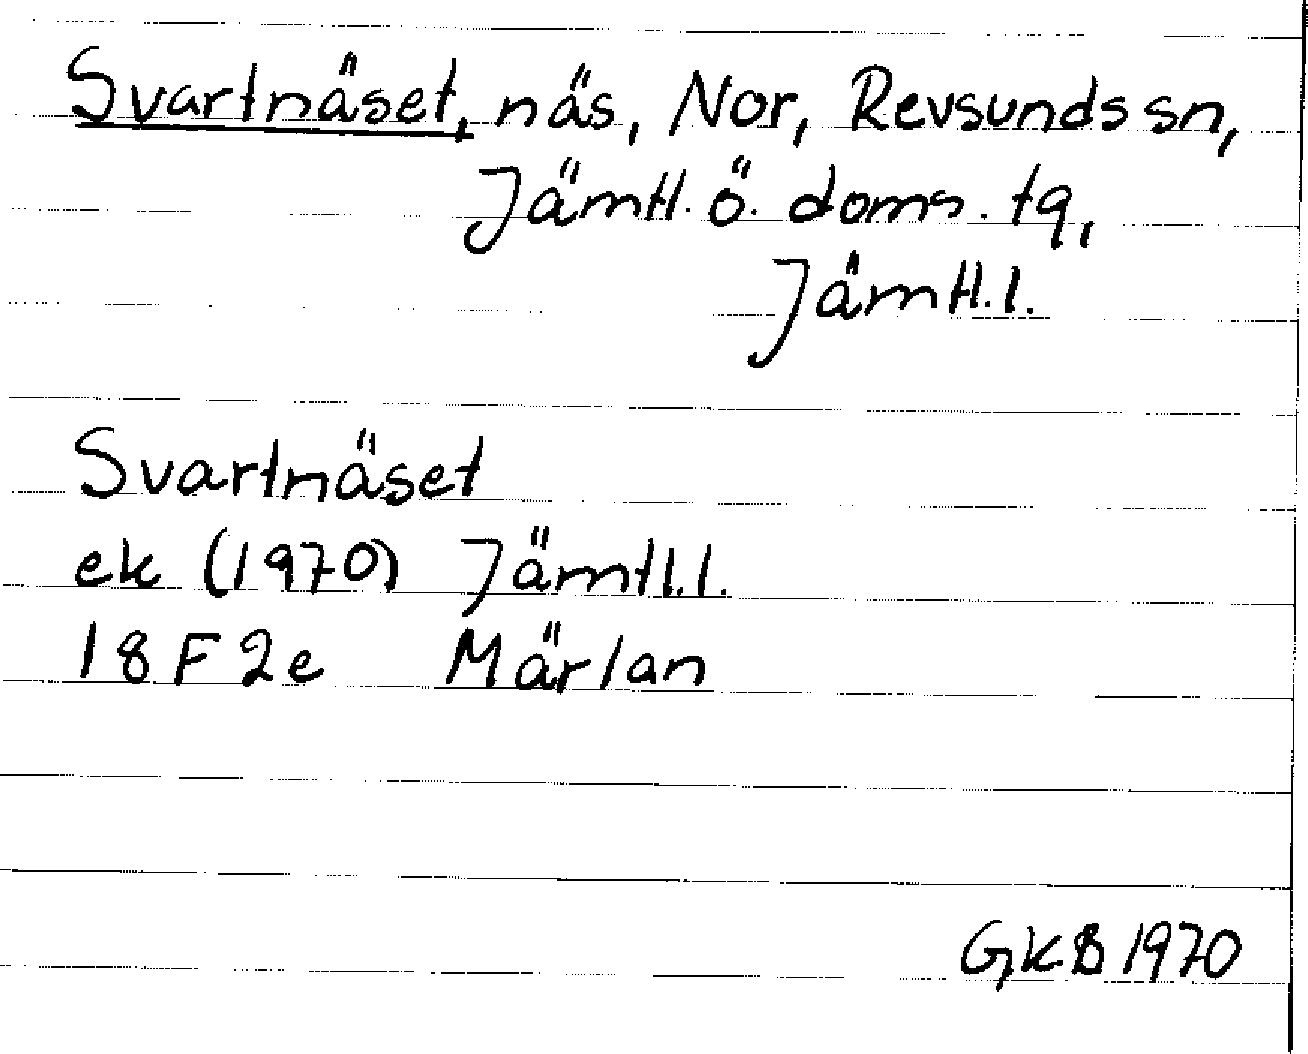 Svartnäset, näs, Nor, Revsunds sn,
Jämtl. ö. doms. tg,
Jämtl. l.
Svartnäset
ek (1970) Jämtl. l.
18 F 2e Märlan
GKB 1970